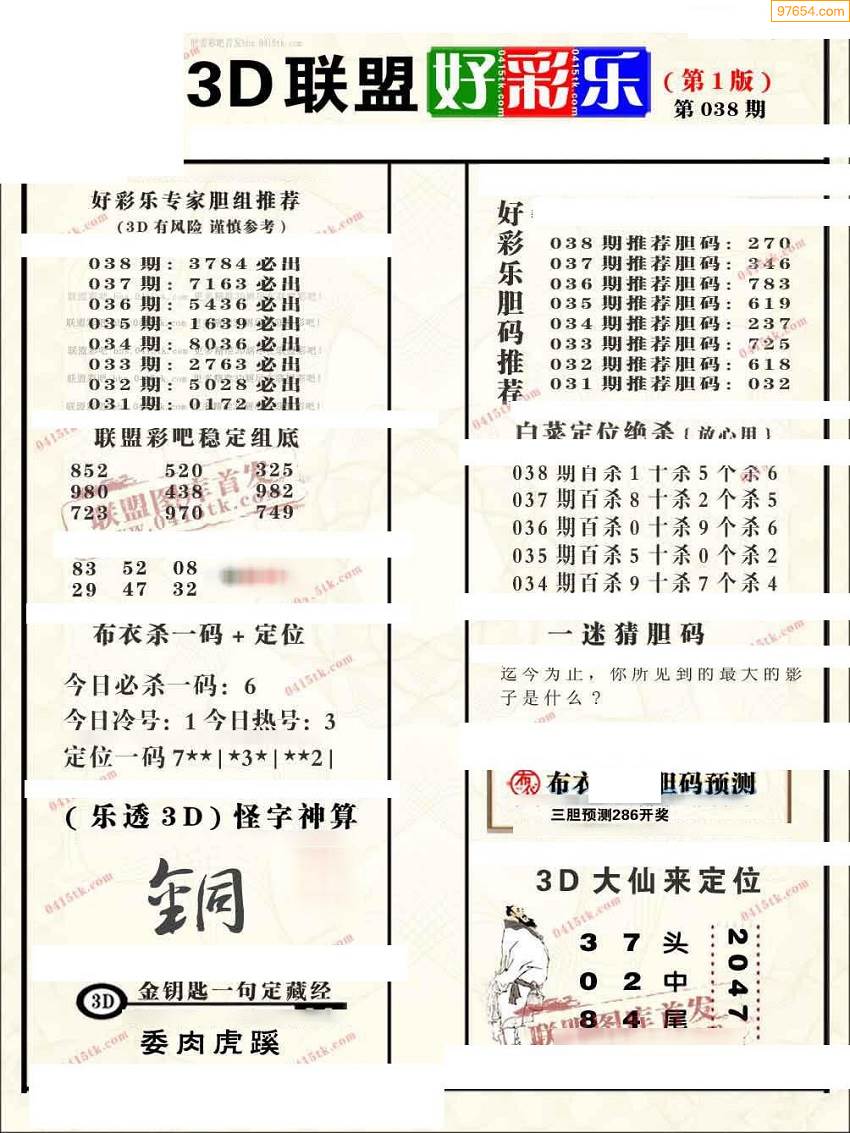 97654.com
3D联盟好彩乐
(第1版)
第038期
好彩乐专家胆组推荐
(3D有风险 谨慎参考)
038期: 3784必出
037期: 7163必出
036期: 5436必出
035期: 1639必出
034期: 8036必出
033期: 2763必出
032期: 5028必出
031期: 0172必出
联盟彩吧稳定组底
852 520 325
980 438 982
723 970 749
83 52 08
29 47 32
布衣杀一码+定位
今日必杀一码: 6
今日冷号: 1 今日热号: 3
定位一码7**|*3*|**2|
(乐透3D)怪字神算
銅
3D
金钥匙一句定藏经
委肉虎蹊
好彩乐胆码推荐
038期推荐胆码: 270
037期推荐胆码: 346
036期推荐胆码: 783
035期推荐胆码: 619
034期推荐胆码: 237
033期推荐胆码: 725
032期推荐胆码: 618
031期推荐胆码: 032
白菜定位绝杀{放心用}
038期百杀1十杀5个杀6
037期百杀8十杀2个杀5
036期百杀0十杀9个杀6
035期百杀5十杀0个杀2
034期百杀9十杀7个杀4
一迷猜胆码
迄今为止，你所见到的最大的影
子是什么？
布衣 胆码预测
三胆预测286开奖
3D大仙来定位
3 7 头
0 2 中
8 4 尾
2047
联盟图库首发
www.0415tk.com
联盟图库首发
0415tk.com